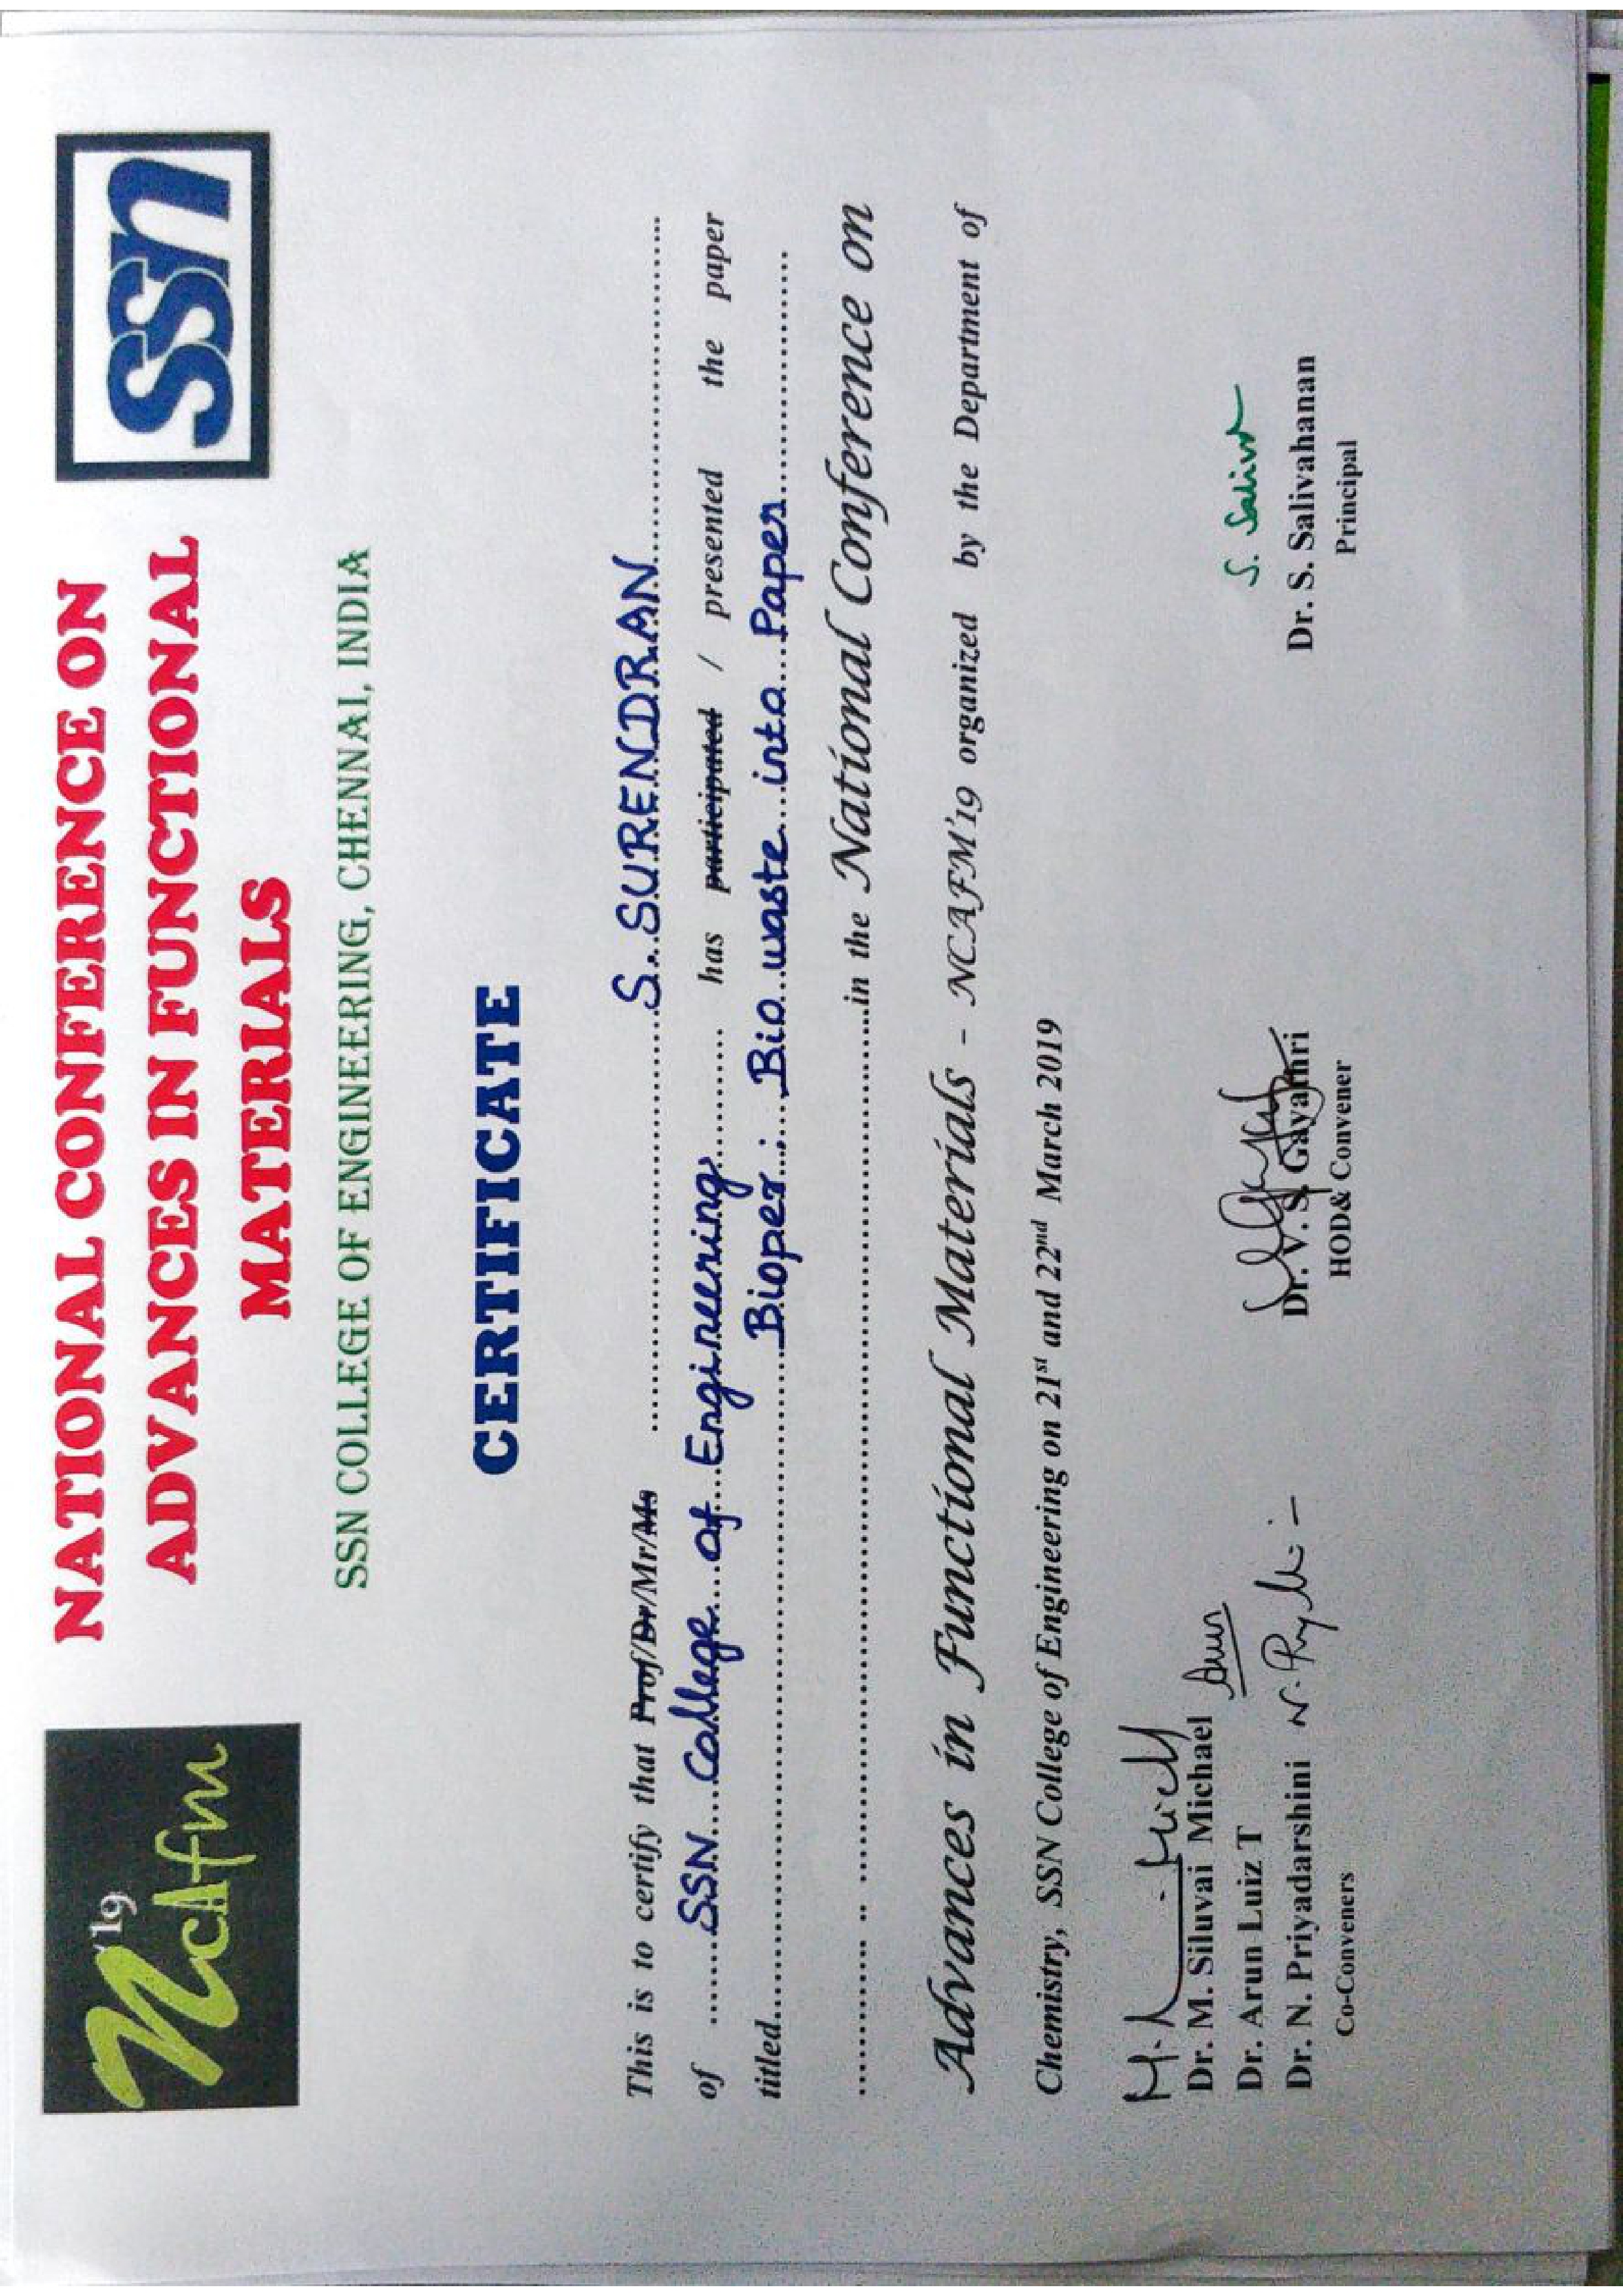 '19
ncAfm
NATIONAL CONFERENCE ON
ADVANCES IN FUNCTIONAL
MATERIALS
ssn
SSN COLLEGE OF ENGINEERING, CHENNAI, INDIA
CERTIFICATE
This is to certify that Prof/Dr/Mr/Ms ..........S. SURENDRAN..........
of .......SSN College of Engineering......... has participated / presented the paper
titled..........Bioper : Bio waste into Paper..........
..........in the National Conference on
Advances in Functional Materials - NCAFM'19 organized by the Department of
Chemistry, SSN College of Engineering on 21st and 22nd March 2019
Dr. M. Siluvai Michael
Dr. Arun Luiz T
Dr. N. Priyadarshini
Co-Conveners
Dr. V. S. Gayathri
HOD& Convener
S. Saliva
Dr. S. Salivahanan
Principal